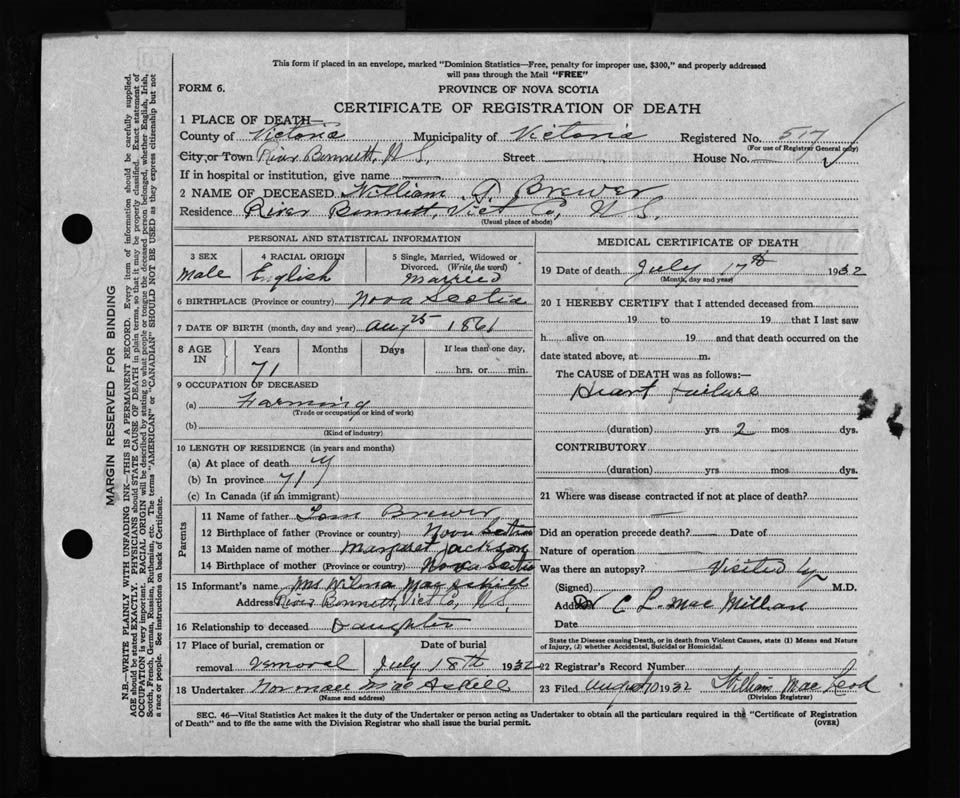 This form if placed in an envelope, marked "Dominion Statistics—Free, penalty for improper use, $300," and properly addressed
will pass through the Mail "FREE"
FORM 6.
PROVINCE OF NOVA SCOTIA
CERTIFICATE OF REGISTRATION OF DEATH
1 PLACE OF DEATH—
County of Victoria Municipality of Victoria Registered No. 517
(For use of Registrar General only)
City, or Town River Bennett, N S. Street — House No. —
If in hospital or institution, give name —
2 NAME OF DECEASED William A. Brewer
Residence River Bennett, Vict Co, N. S.
(Usual place of abode)
PERSONAL AND STATISTICAL INFORMATION
3 SEX 4 RACIAL ORIGIN 5 Single, Married, Widowed or
Divorced. (Write the word)
Male English Married
6 BIRTHPLACE (Province or country) Nova Scotia
7 DATE OF BIRTH (month, day and year) Aug 25 1861
8 AGE IN Years Months Days If less than one day,
71 hrs. or min.
9 OCCUPATION OF DECEASED
(a) Farming
(Trade or occupation or kind of work)
(b)
(Kind of industry)
10 LENGTH OF RESIDENCE (in years and months)
(a) At place of death
(b) In province 71
(c) In Canada (if an immigrant)
Parents
11 Name of father Tom Brewer
12 Birthplace of father (Province or country) Nova Scotia
13 Maiden name of mother Margaret Jackson
14 Birthplace of mother (Province or country) Nova Scotia
15 Informant's name Mrs. Wilma Mac Askill
Address River Bennett, Vict Co, N.S.
16 Relationship to deceased Daughter
17 Place of burial, cremation or Date of burial
removal July 18th 1932
18 Undertaker Norman Mac Askill
(Name and address)
MEDICAL CERTIFICATE OF DEATH
19 Date of death July 17th 1932
(Month, day and year)
20 I HEREBY CERTIFY that I attended deceased from
19 to 19 that I last saw
h alive on 19 and that death occurred on the
date stated above, at m.
The CAUSE of DEATH was as follows:—
Heart failure
(duration) yrs 2 mos dys.
CONTRIBUTORY.
(duration) yrs mos dys.
21 Where was disease contracted if not at place of death?
—
Did an operation precede death? — Date of
Nature of operation —
Was there an autopsy? — Visited by
(Signed) M.D.
Address Dr C L. Mac Millan
Date
State the Disease causing Death, or in death from Violent Causes, state (1) Means and Nature
of Injury, (2) whether Accidental, Suicidal or Homicidal.
22 Registrar's Record Number
23 Filed August 10 1932 William Mac Leod
(Division Registrar)
SEC. 46—Vital Statistics Act makes it the duty of the Undertaker or person acting as Undertaker to obtain all the particulars required in the "Certificate of Registration
of Death" and to file the same with the Division Registrar who shall issue the burial permit. (OVER)
MARGIN RESERVED FOR BINDING
N.B.—WRITE PLAINLY WITH UNFADING INK—THIS IS A PERMANENT RECORD. Every item of information should be carefully supplied.
AGE should be stated EXACTLY. PHYSICIANS should STATE CAUSE OF DEATH in plain terms, so that it may be properly classified. Exact statement of
OCCUPATION is very important. RACIAL ORIGIN will be described by stating to what people or tongue the deceased person belonged, whether English, Irish,
Scotch, French, German, Russian, Ruthenian, etc. The terms "AMERICAN" or "CANADIAN" SHOULD NOT BE USED as they express citizenship but not
a race or people. See instructions on back of Certificate.